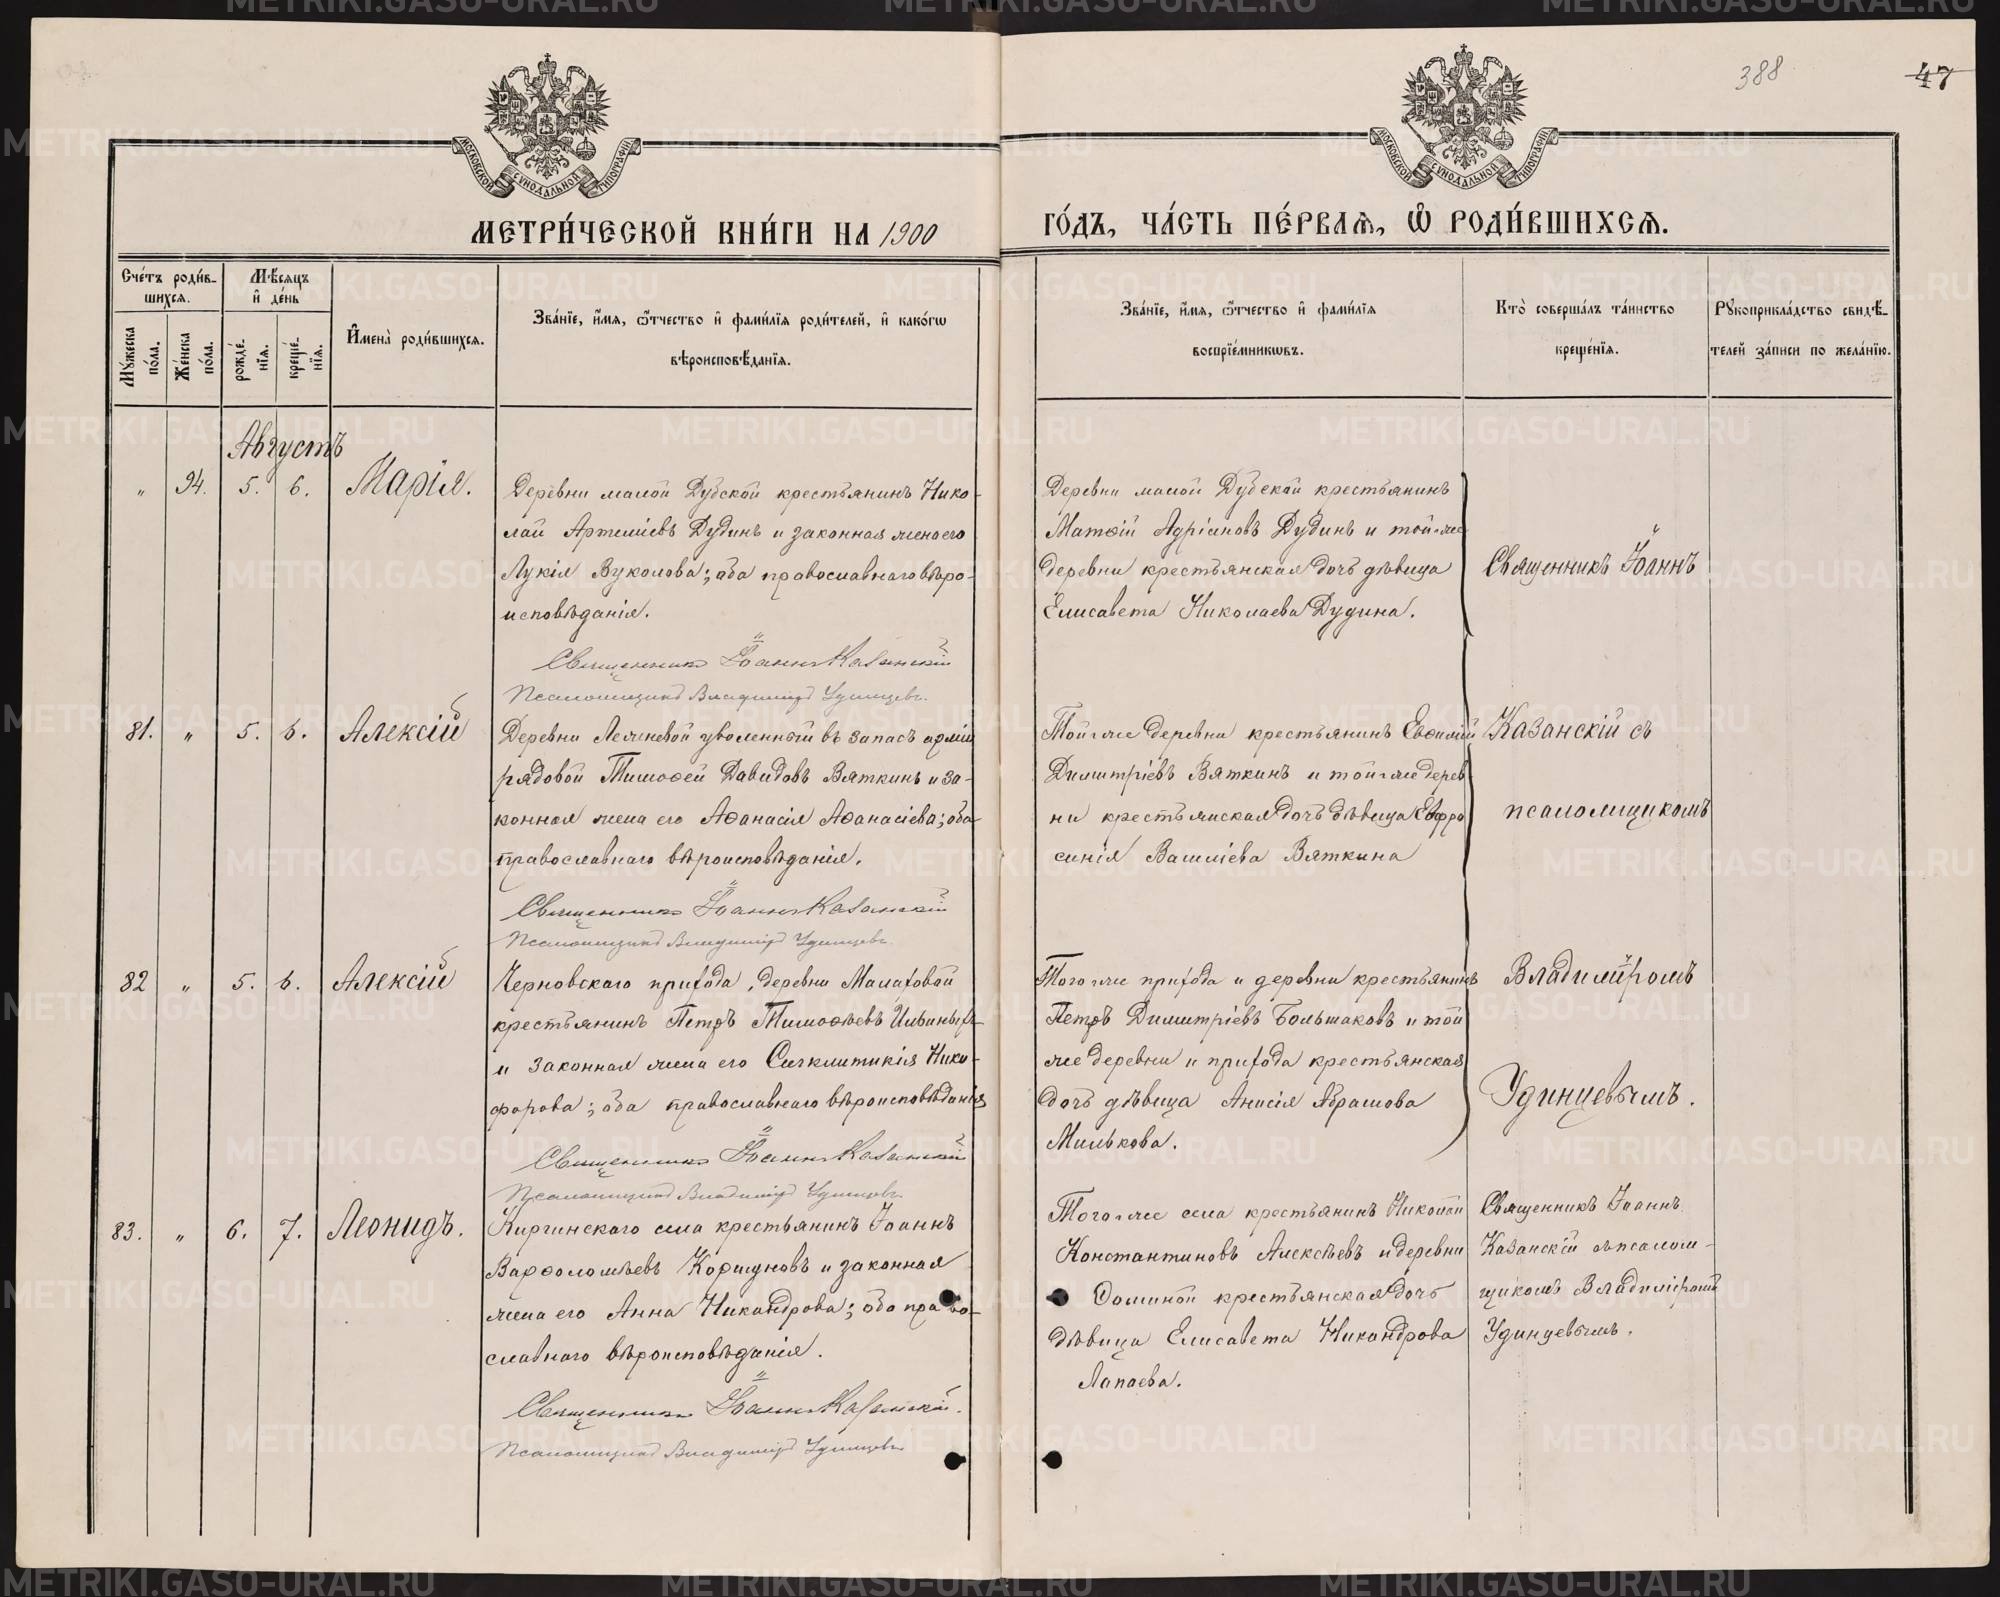 388
47
МОСКОВСКОЙ СУНОДАЛЬНОЙ ТИПОГРАФІИ
МОСКОВСКОЙ СУНОДАЛЬНОЙ ТИПОГРАФІИ
МЕТРИ́ЧЕСКОЙ КНИ́ГИ НА 1900
ГО́ДЪ, ЧА́СТЬ ПЕ́РВАЯ, Ѽ РОДИ́ВШИХСЯ.
Сче́тъ роди́в-
шихся.
Му́жеска по́ла.
Же́нска по́ла.
Мѣсяцъ
и҆ де́нь
рожде́-
нїя.
креще́-
нїя.
И҆мена̀ роди́вшихся.
Зва́нїе, и҆́мя, ѻ҆́тчество и҆ фами́лїѧ роди́телей, и҆ како́гѡ
вѣроисповѣ́данїя.
Зва́нїе, и҆́мя, ѻ҆́тчество и҆ фами́лїя
воспрїе́мникѡвъ.
Кто̀ соверша́лъ та́инство
креще́нїя.
Рукоприкла́дство свидѣ́-
телей за́писи по жела́нїю.
Августъ
„ 94. 5. 6. Марія.
Деревни малой Дубской крестьянинъ Нико-
лай Артеміевъ Дудинъ и законная жена его
Лукія Вуколова; оба православнаго вѣро-
исповѣданія.
Священникъ Іоаннъ Казанскій
Псаломщикъ Владиміръ Удинцевъ.
Деревни малой Дубской крестьянинъ
Матѳій Адріановъ Дудинъ и той-же
деревни крестьянская дочь дѣвица
Елисавета Николаева Дудина.
81. „ 5. 6. Алексій
Деревни уволенный въ запасъ арміи
рядовой Тимоѳей Давидовъ Вяткинъ и за-
конная жена его Аѳанасія Аѳанасіева; оба
православнаго вѣроисповѣданія.
Священникъ Іоаннъ Казанскій
Псаломщикъ Владиміръ Удинцевъ.
Той-же деревни крестьянинъ Евѳимій
Димитріевъ Вяткинъ и той-же дерев
ни крестьянская дочь дѣвица Евфро
синія Василіева Вяткина
82 „ 5. 6. Алексій
Черновскаго прихода, деревни Малаховой
крестьянинъ Петръ Тимоѳеевъ Ильиныхъ
и законная жена его Сигклитикія Ники-
форова; оба православнаго вѣроисповѣданія
Священникъ Іоаннъ Казанскій
Псаломщикъ Владиміръ Удинцевъ.
Того-же прихода и деревни крестьянинъ
Петръ Димитріевъ Большаковъ и той
же деревни и прихода крестьянская
дочь дѣвица Анисія Абрамова
Милькова.
Священникъ Іоаннъ
Казанскій съ
псаломщикомъ
Владиміромъ
Удинцевымъ.
83. „ 6. 7. Леонидъ.
Киргинскаго села крестьянинъ Іоаннъ
Варѳоломѣевъ Коршуновъ и законная
жена его Анна Никандрова; оба право-
славнаго вѣроисповѣданія.
Священникъ Іоаннъ Казанскій.
Псаломщикъ Владиміръ Удинцевъ
Того-же села крестьянинъ Николай
Константиновъ Алексѣевъ и деревни
Ѳоминой крестьянская дочь
дѣвица Елисавета Никандрова
Лапаева.
Священникъ Іоаннъ
Казанскій съ псалом-
щикомъ Владиміромъ
Удинцевымъ.